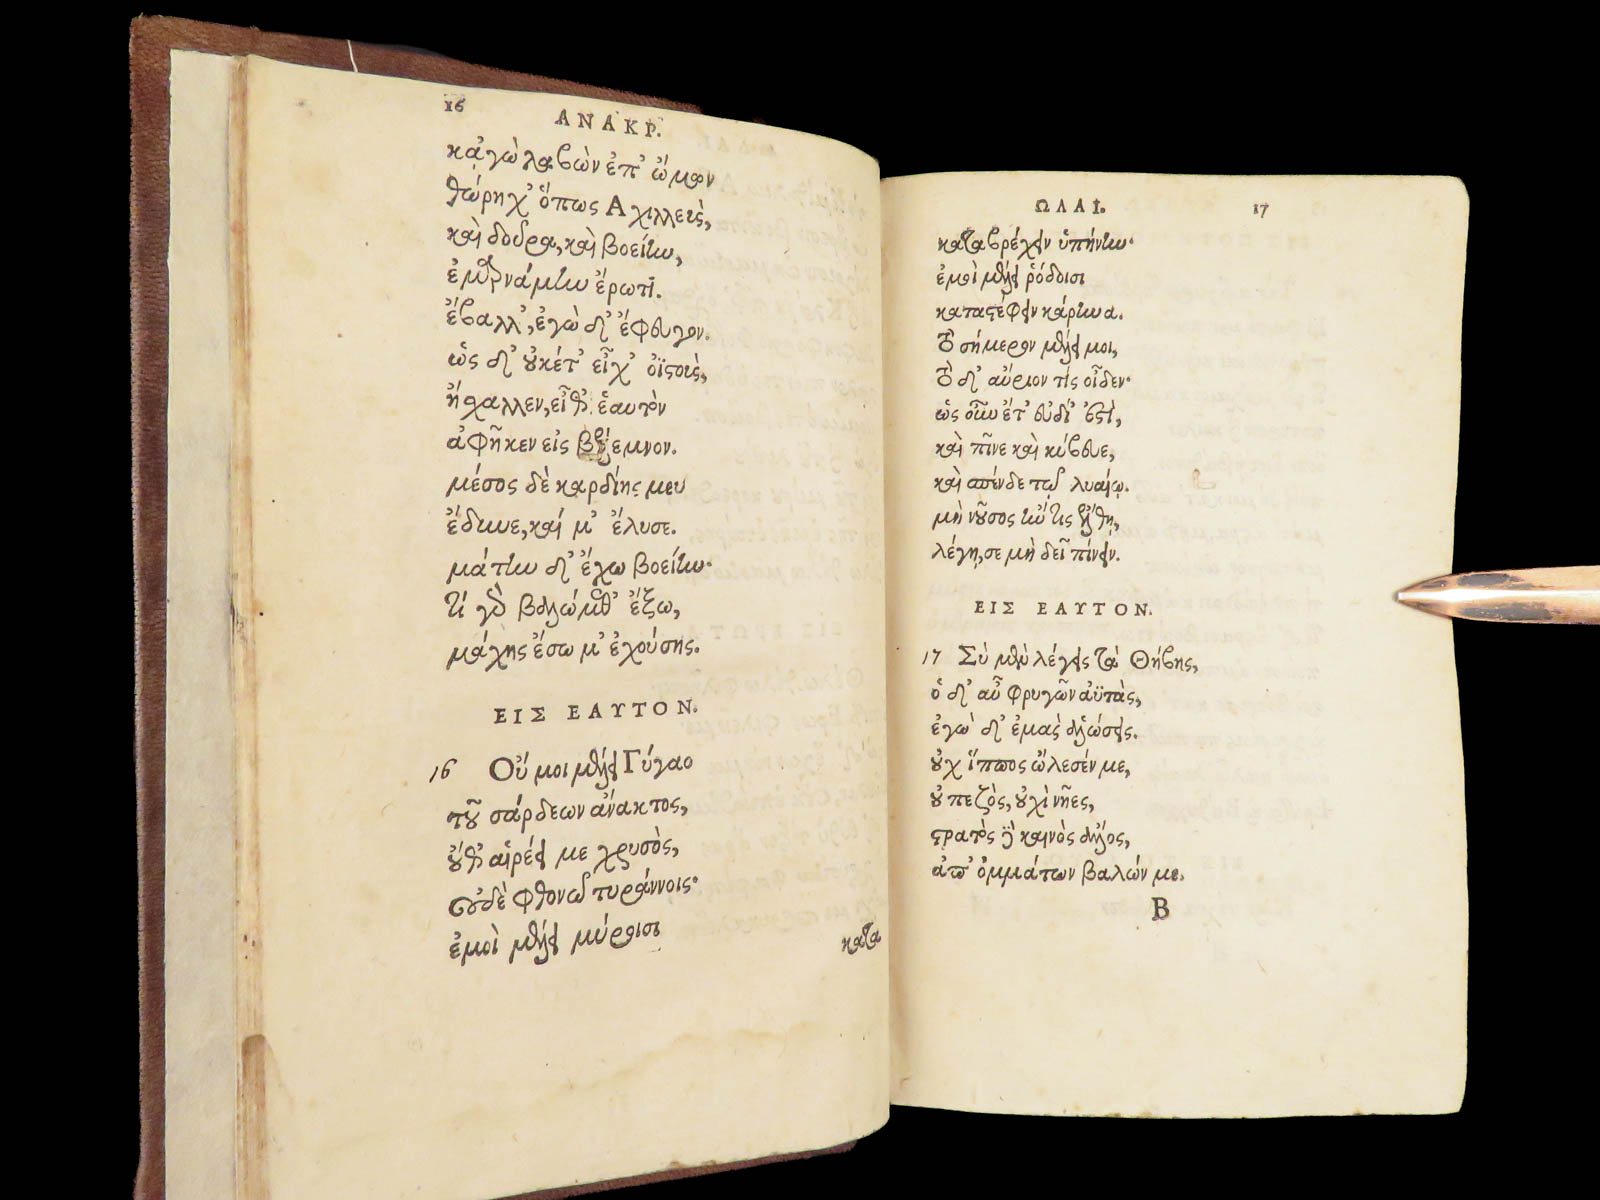 16
ΑΝΑΚΡ.
κᾀγὼ λαβὼν ἐπ' ὤμων
θώρηχ' ὅπως Ἀχιλλεὺς,
καὶ δοῦρα, καὶ βοείην,
ἐμαρνάμην ἔρωτι.
ἔβαλλ', ἐγὼ δ' ἔφευγον.
ὡς δ' οὐκέτ' εἶχ' ὀϊστοὺς,
ἤσχαλλεν, εἶθ' ἑαυτὸν
ἀφῆκεν εἰς βέλεμνον.
μέσος δὲ καρδίης μευ
ἔδυνε, καί μ' ἔλυσε.
μάτην δ' ἔχω βοείην·
τί γὰρ βαλώμεθ' ἔξω,
μάχης ἔσω μ' ἐχούσης.
ΕΙΣ ΕΑΥΤΟΝ.
16 Οὔ μοι μέλει Γύγαο
τοῦ σάρδεων ἄνακτος,
οὔθ' αἱρέει με χρυσὸς,
οὐδὲ φθονῶ τυράννοις·
ἐμοὶ μέλει μύροισι
κατα
ΩΔΑΙ. 17
καταβρέχειν ὑπήνην·
ἐμοὶ μέλει ῥόδοισι
καταστέφειν κάρηνα.
τὸ σήμερον μέλει μοι,
τὸ δ' αὔριον τίς οἶδεν·
ὡς οὖν ἔτ' εὐδί' ἐστὶ,
καὶ πῖνε καὶ κύβευε,
καὶ σπένδε τῷ λυαίῳ.
μὴ νοῦσος ἤν τις ἔλθῃ,
λέγῃ, σε μὴ δεῖ πίνειν.
ΕΙΣ ΕΑΥΤΟΝ.
17 Σὺ μὲν λέγεις τὰ Θήβης,
ὁ δ' αὖ φρυγῶν ἀϋτὰς,
ἐγὼ δ' ἐμὰς ἁλώσεις.
οὐχ ἵππος ὤλεσέν με,
οὐ πεζὸς, οὐχὶ νῆες,
στρατὸς δὲ καινὸς ἄλλος,
ἀπ' ὀμμάτων βαλών με.
B